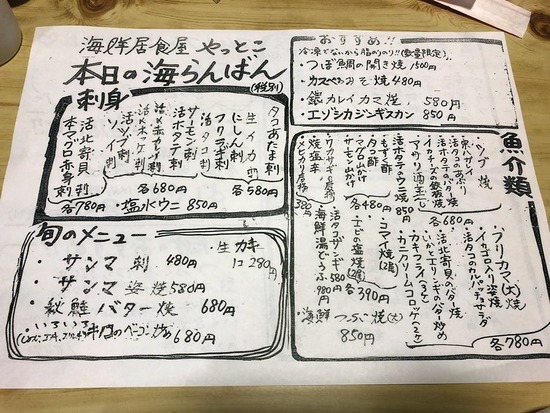 海鮮居食屋 やっとこ
本日の海らんばん
(税別)
刺身
タコあたま刺
生イカ刺
にしん刺
フクラギ刺
各580円
サーモン刺
活ホタテ刺
活タコ刺
各680円
活北寄貝刺
本マグロ赤身刺
各780円
・塩水ウニ 850円
旬のメニュー
・生カキ
1コ 280円
・サンマ刺 480円
・サンマ姿焼 580円
・秋鮭バター焼 680円
680円
おすすめ!!
冷凍でないから脂のり!!(数量限定)
・つぼ鯛の開き焼 1500円
・カスベみそ焼 480円
・銀カレイカマ焼 580円
・エゾシカジンギスカン 850円
魚介類
ブリカマ(大)焼
イカゴロ入り姿焼
活タコのカルパッチョサラダ
活北寄貝のバター焼
いかとエリンギのバター炒め
カキフライ(3ケ)
カニクリームコロッケ(2ケ)
各780円
ツブ焼
活タコのあぶり
イカゲソの鉄板焼
アサリ酒蒸し
各680円
850円
タコ酢
もずく酢
マグロ山かけ
サーモン山かけ
各480円
コマイ焼(2尾)
エビの塩焼(2尾)
各390円
ワカサギの唐揚
焼塩辛
メヒカリの唐揚
380円
活タコザンギ 580円
海鮮湯どうふ 980円
・海鮮つぶ焼(大)
850円